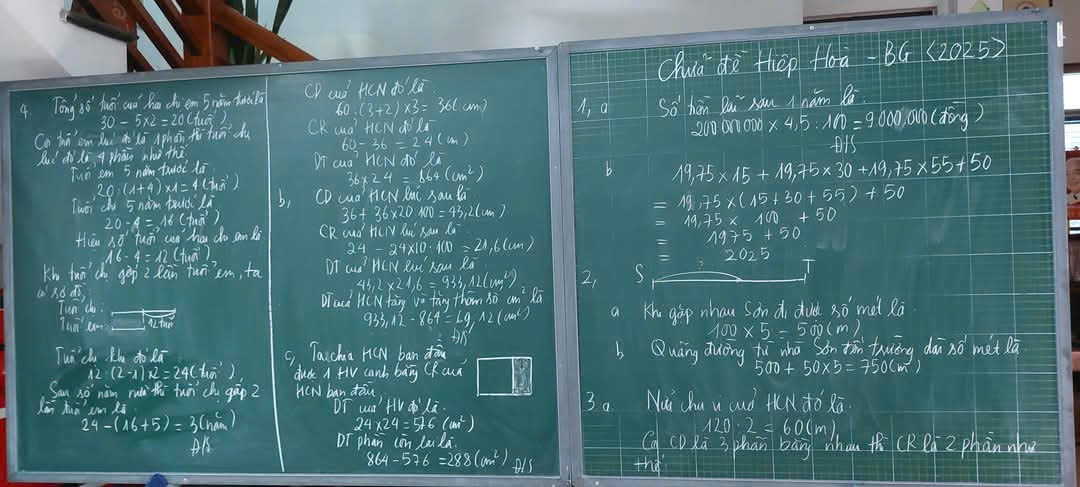 Chữa đề Hiệp Hoà - BG <2025>
1, a Số tiền lãi sau 1 năm là
200 000 000 x 4,5 : 100 = 9.000.000 (đồng)
Đ/S
b 19,75 x 15 + 19,75 x 30 + 19,75 x 55 + 50
= 19,75 x (15 + 30 + 55) + 50
= 19,75 x 100 + 50
= 1975 + 50
= 2025
2, S ? T
a Khi gặp nhau Sơn đi được số mét là
100 x 5 = 500 (m)
b Quãng đường từ nhà Sơn đến trường dài số mét là
500 + 50 x 5 = 750 (m)
3 a. Nửa chu vi của HCN đó là.
120 : 2 = 60 (m)
Coi CD là 3 phần bằng nhau thì CR là 2 phần như
thế.
CD của HCN đó là
60 : (3+2) x 3 = 36 (cm)
CR của HCN đó là
60 - 36 = 24 (cm)
DT của HCN đó là
36 x 24 = 864 (cm²)
b, CD của HCN lúc sau là
36 + 36 x 20 : 100 = 43,2 (cm)
CR của HCN lúc sau là
24 - 24 x 10 : 100 = 21,6 (cm)
DT của HCN lúc sau là
43,2 x 21,6 = 933,12 (cm²)
DT của HCN tăng và tăng thêm số cm² là
933,12 - 864 = 69,12 (cm²)
Đ/S
c, Ta chia HCN ban đầu
được 1 HV cạnh bằng CR của
HCN ban đầu.
DT của HV đó là.
24 x 24 = 576 (cm²)
DT phần còn lại là.
864 - 576 = 288 (cm²) Đ/S
4. Tổng số tuổi của hai chị em 5 năm trước là
30 - 5 x 2 = 20 (tuổi)
Coi tuổi em lúc đó là 1 phần thì tuổi chị
lúc đó là 4 phần như thế
Tuổi em 5 năm trước là
20 : (1+4) x 1 = 4 (tuổi)
Tuổi chị 5 năm trước là
20 - 4 = 16 (tuổi)
Hiệu số tuổi của hai chị em là
16 - 4 = 12 (tuổi)
Khi tuổi chị gấp 2 lần tuổi em, ta
có sơ đồ
Tuổi chị:
Tuổi em: 12 tuổi
Tuổi chị khi đó là
12 : (2-1) x 2 = 24 (tuổi)
Sau số năm nữa thì tuổi chị gấp 2
lần tuổi em là
24 - (16+5) = 3 (năm)
Đ/S